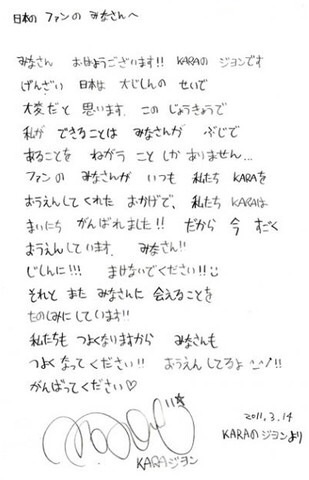 日本の ファンの みなさんへ
みなさん おはようございます!! KARAのジヨンです
げんざい 日本は 大じしんの せいで
大変だと 思います. この じょうきょうで
私が できることは みなさんが ぶじで
あることを ねがう こと しか ありません...
ファンの みなさんが いつも 私たち KARAを
おうえんしてくれた おかげで、私たち KARAは
まいにち がんばれました!! だから 今 すごく
おうえんしています. みなさん!!
じしんに!!! まけないでください!!
それと また みなさんに 会えることを
たのしみにしています!!
私たちも つよくなりますから みなさんも
つよく なってください!! おうえん してるよ ^_^!!
がんばってください♡
2011.3.14
KARAジヨン
KARAのジヨンより